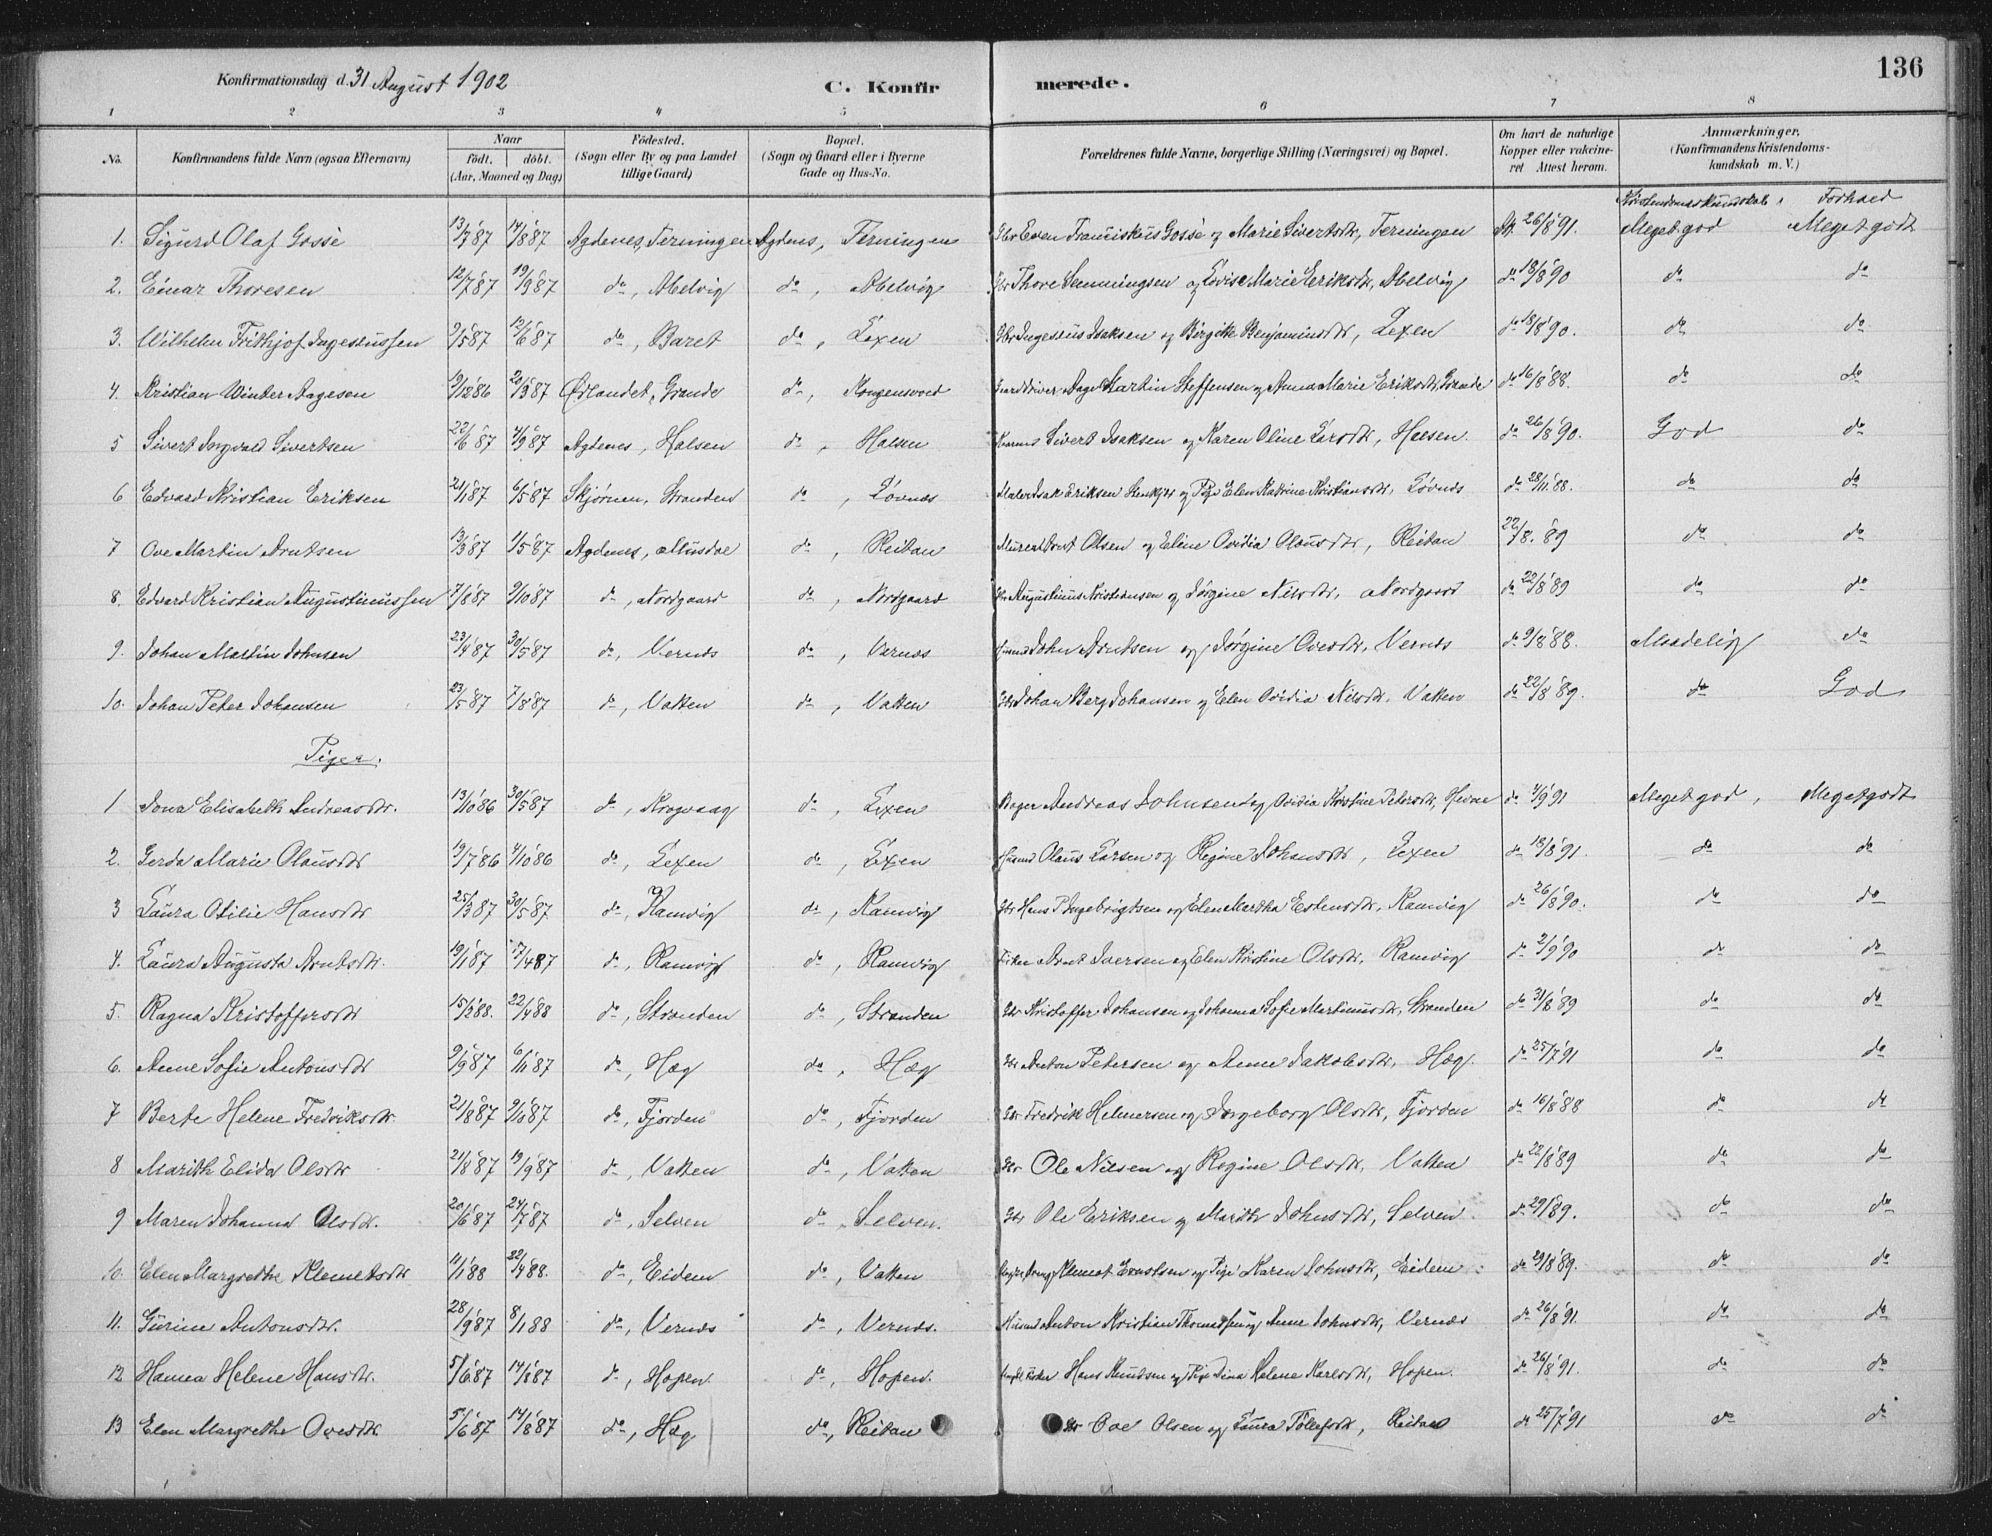 136
Konfirmationsdag d. 31 August 1902
C. Konfirmerede.
1 2 3 4 5 6 7 8
No. Konfirmandens fulde Navn (ogsaa Efternavn) Naar født. døbt. (Aar, Maaned og Dag) Fødested. (Sogn eller By og paa Landet tillige Gaard) Bopæl. (Sogn og Gaard eller i Byerne Gade og Hus-No. Forældrenes fulde Navne, borgerlige Stilling (Næringsvei) og Bopæl. Om havt de naturlige Kopper eller vakcineret Attest herom. Anmærkninger. (Konfirmandens Kristendomskundskab m. V.)
Kristendomskundskab Forhold
1. Sigurd Olaf Gossé 13/7 '87 14/8 '87 Agdenes, Terningen Agdenes, Terningen Gbr Even Franciskus Gossé og Marie Sivertsdtr, Terningen 26/8 '91. Meget god Meget godt
2. Einar Thoresen 12/7 '87 19/9 '87 do, Melvig do, Melvig Gbr Thore Henningsen og Lovise Marie Eriksdtr, Melvig do 18/8 '90 do do
3. Wilhelm Frithjof Ingeniussen 9/5 '87 12/6 '87 do, Baret do, Lexen Gbr Isaksen og Birgitte Benjaminsdtr, Lexen do 18/8 '90. do do
4. Kristian Winter Aagesen 19/12 86 20/3 '87 Ørlandet, Grande do, Kongensvold Gaardbruger Aage Martin Steffensen og Anna Marie Eriksdtr, Grande do 16/8 '88. do do
5 Sivert Ingvald Sivertsen 22/6 '87 4/9 '87 Agdenes, Halsen do, Halsen Sivert Isaksen og Karen Oline Larsdtr, Halsen do 26/8 '90. God do
6 Edvard Kristian Eriksen 21/1 '87 6/5 '87 Skjørnen, Stranden do, Løvnes Maler Isak Eriksen og Pige Elen Katrine Kristiansdtr, Løvnes do 28/11 '88. do do
7 Ove Martin Arntsen 13/3 '87 1/5 '87 Agdenes, Musdal do, Reitan Murer Arnt Olsen og Eline Ovidia Olausdtr, Reitan 22/8 '89 do do
8. Edvard Kristian Augustinussen 7/8 '87 9/10 '87 do, Nordgaard do, Nordgaard Gbr Augustinus Kristensen og Jørgine Nilsdtr, Nordgaard do 22/8 '89 do do
9. Johan Martin Johnsen 23/4 '87 30/5 '87 do, Vernes do, Vernes Husmd John Arntsen og Jørgine Ovesdtr, Vernes do 9/8 '88. Maadelig do
10. Johan Peter Johansen 23/5 '87 7/8 '87 do, Vatten do, Vatten Gbr Johan Berg Johansen og Elen Ovidia Nilsdtr, Vatten do 22/8 '89. do God
Piger.
1 Jona Elisabeth Andreasdtr. 13/10 '86 30/5 '87 do, Krogvaag do, Lexen Bager Andreas Johnsen og Ovidia Kristine Petersdtr, Hevne do 4/9 '91 Meget god, Meget godt
2. Gerda Marie Olausdtr 19/7 '86 4/10 '86 do, Lexen do, Lexen Husmd Olaus Larsen og Regine Johansdtr, Lexen do 18/8 '91. do do
3 Laura Otilie Hansdtr 25/3 '87 30/5 '87 do, Ramvig do, Ramvig Gbr Hans P. Ingebrigtsen og Elen Martha Estensdtr, Ramvig do 26/8 '90. do do
4. Laura Augusta Arntsdtr. 19/1 '87 17/4 87 do, Ramvig do, Ramvig Fisker Arnt Iversen og Elen Kristine Olsdtr, Ramvig do 2/9 '90 do do
5. Ragna Kristoffersdtr 15/2 '88. 22/4 '88 do, Stranden do, Stranden Gbr Kristoffer Johansen og Johanna Sofie Martinusdtr, Stranden do 31/8 '89 do do
6. Anne Sofie Antonsdtr 9/9 '87 6/11 '87 do, Hæg do, Hæg Gbr Anton Petersen og Anne Jakobsdtr, Hæg do 25/7 '91 do do
7 Berte Helene Fredriksdtr. 21/8 '87 9/10 '87 do, Fjorden do, Fjorden Gbr Fredrik Helmersen og Ingeborg Olsdtr, Fjorden do 16/8 '88 do do
8 Marith Elida Olsdtr 21/8 '87 19/9 '87 do, Vatten do, Vatten Gbr Ole Nilsen og Regine Olsdtr, Vatten do 22/8 '89 do do
9 Maren Johanna Olsdtr. 20/6 '87 24/7 '87 do, Selven do, Selven. Gbr Ole Eriksen og Marith Johnsdtr, Selven do 29/8 89. do do
10. Elen Margrethe Klemetsdtr 11/1 '88 22/4 '88. do, Eidem do, Vatten Klemet Ernstsen og Pige Karen Johnsdtr, Eidem do 29/8 '89. do do
11. Gurine Antonsdtr. 28/9 '87 8/1 88 do, Vernes do, Vernes. Husmd Anton Kristian Thomassen og Anne Johnsdtr, Vernes do 26/8 '91. do do
12 Hanna Helene Hansdtr. 5/6 '87 14/8 '87 do, Hopen do, Hopen. Hans Knudsen og Pige Dina Helene Karlsdtr, Hopen. do 26/8 '91. do do
13 Elen Margrethe Ovesdtr. 5/6 '87 14/8 '87 do, Hæg do, Reitan Gbr Ove Olsen og Laura Tollefsdtr, Reitan do 25/7 '91 do do